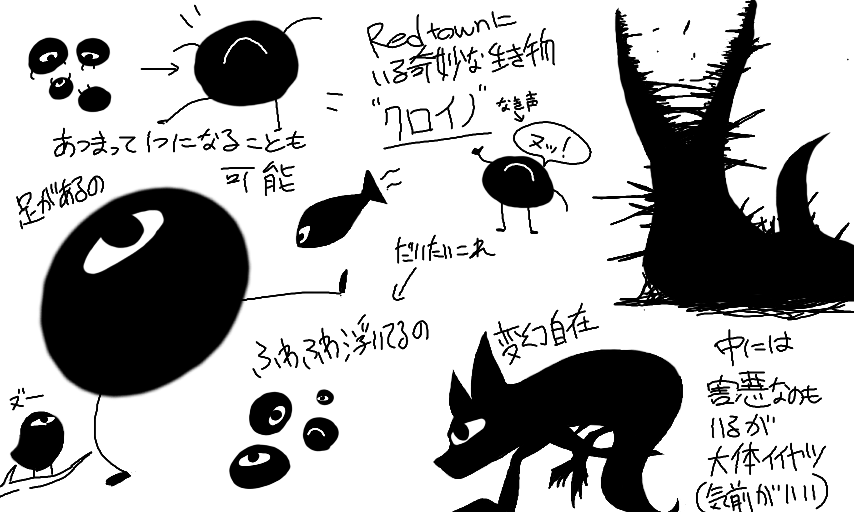 Redtownに
いる奇妙な生き物
"クロイノ"
なき声
ヌッ!
あつまって1つになることも
可能
足があるの
だいたいこれ
ふわふわ浮いてるの
ヌー
変幻自在
中には
害悪なのも
いるが
大体イイヤツ
(気前がいい)